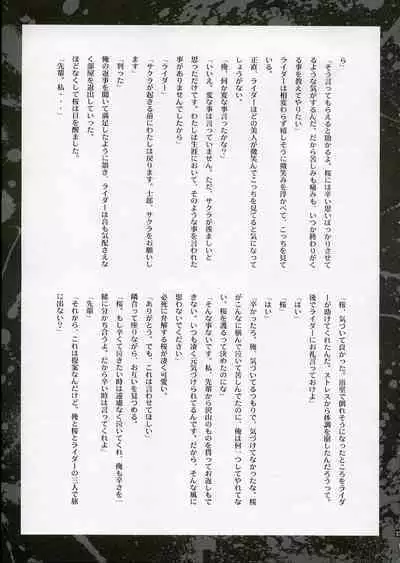 ら」
「そう言ってもらえると助かるよ。桜には辛い思いばっかりさせて
るような気がするんだ。だから苦しみも痛みも、いつか終わりがく
る事を教えてやりたい」
ライダーは相変わらず嬉しそうに微笑みを浮かべて、こっちを見て
る。
正直、ライダーほどの美人が微笑んでこっちを見てると気になって
しょうがない。
「俺、何か変な事言ったかな?」
「いいえ、変な事は言っていません。ただ、サクラが羨ましいと
思っただけです。わたしは生涯において、そのような事を言われた
事がありませんでしたから」
「ライダー」
「サクラが起きる前にわたしは戻ります。士郎、サクラをお願いし
ます」
「判った」
俺の返事を聞いて満足したように頷き、ライダーは音も気配さえな
く部屋を退出していった。
ほどなくして桜は目を醒ました。
「先輩、私・・・」
「桜、気づいて良かった。浴室で倒れそうになったところをライダ
ーが助けてくれたんだ。ストレスから体調を崩したんだろうって。
後でライダーにお礼言っておけよ」
「はい」
「桜」
「はい」
「辛かったろう。俺、気づいてるつもりで、気づけてなかったな。桜
がこんなに悩んで泣いて苦しんでたのに、俺は何一つしてやれてな
い、桜を護るって決めたのにな」
「そんな事ないです。私、先輩から沢山のものを貰ってお返しもで
きない、いつも凄く元気づけられてるんです。だから、そんな風に
思わないでください」
必死に弁解する桜が凄く可愛い。
「ありがとう。でも、これは言わせてほしい」
隣合って座りながら、お互いを見つめる。
「桜、もし辛くて泣きたい時は遠慮なく泣いてくれ。俺も辛さを一
緒に分かち合うよ。だから辛い時は言ってくれよ」
「先輩」
「それから、これは提案なんだけど。俺と桜とライダーの三人で旅
に出ない?」